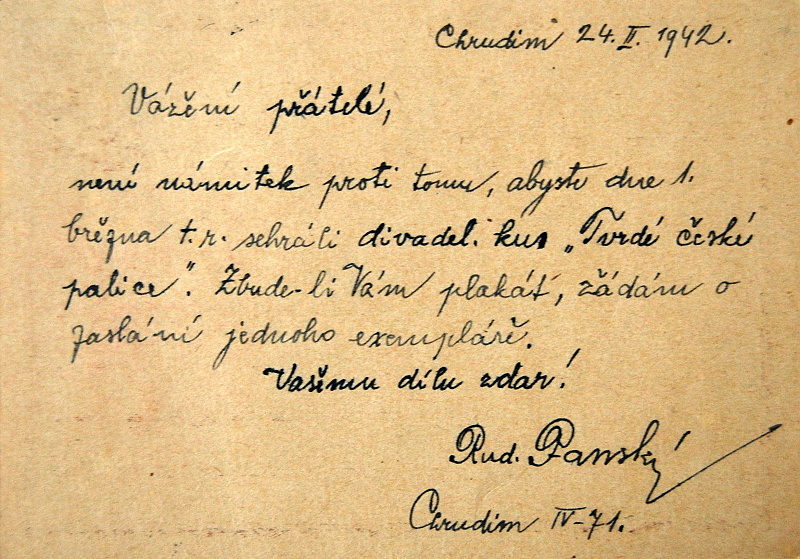 Chrudim 24. II. 1942.
Vážení přátelé,
není námitek proti tomu, abyste dne 1.
března t. r. sehráli divadel. kus „Tvrdé české
palice“. Zbude-li Vám plakát, žádám o
zaslání jednoho exempláře.
Vašemu dílu zdar!
Rud. Panský
Chrudim IV-71.